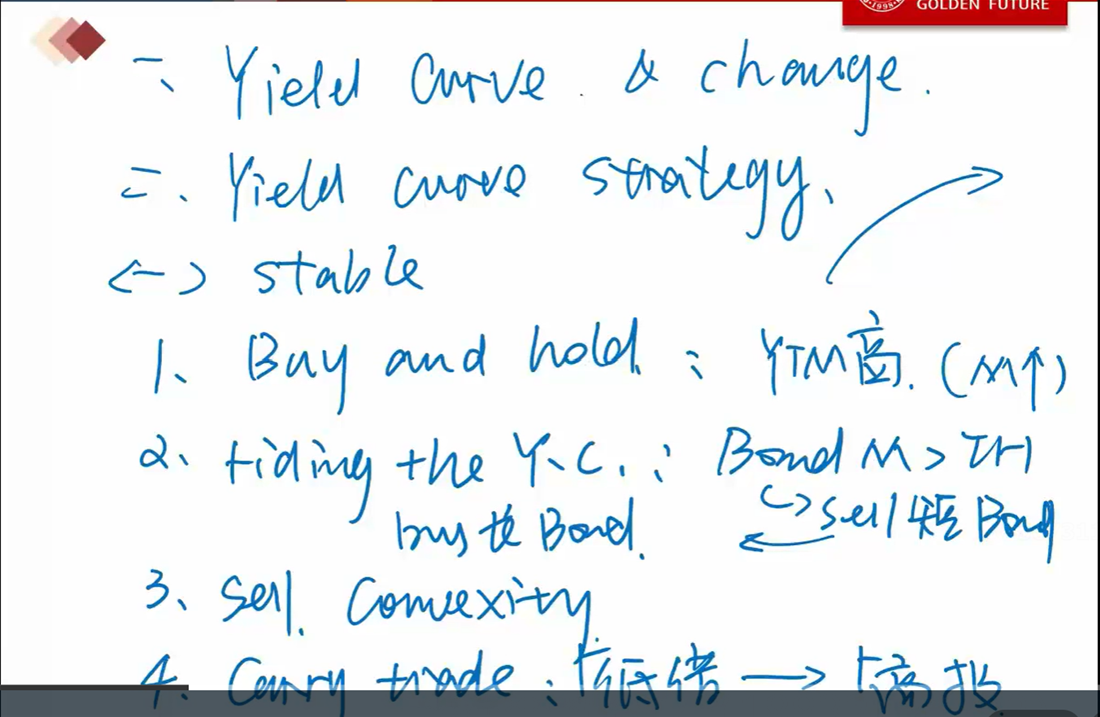 GOLDEN FUTURE
·1998·
一、Yield Curve & change.
二、Yield curve strategy、
<一> stable
1、Buy and hold : YTM高. (M↑)
2、riding the Y.C. : Bond M > IH
buy长 Bond. ↪ sell 短 Bond
3、Sell. Convexity.
4、Carry trade : 低借 → 高投